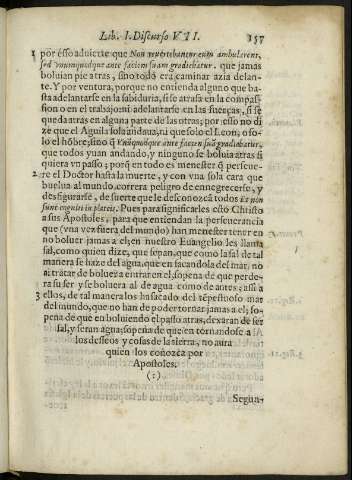 Lib. I. Discurso VII. 157
1 por ésso aduierte que Non reuertebantur cum ambularent,
sed vnumquodque ante faciem suam gradiebatur. que jamas
boluian pie atras, sino todo era caminar azia delan-
te. Y por ventura, porque no entienda alguno que bas-
ta adelantarse en la sabiduria, si se atrasa en la compas-
sion o en el trabajo: ni adelantarse en las fuerças, si se
queda atras en alguna parte de las otras; por esso no di
ze que el Aguila sola andaua, ni que solo el Leon, o so-
lo el hõbre; sino q̃ Vnũquodque ante faciem suã gradiebatur,
que todos yuan andando, y ninguno se boluia atras si
quiera vn passo; porq̃ en todo es menester q̃ perseue-
2 re el Doctor hasta la muerte, y con vna sola cara que
buelua al mundo, correra peligro de ennegrecerse, y
desfigurarse, de suerte que le desconozcã todos Et non
sunt cogniti in plateis. Pues para significarles esto Christo
a sus Apostoles, para que entiendan la perseuerancia
que (vna vez fuera del mundo) han menester tener en
no boluer jamas a el; en nuestro Euangelio les llama
sal, como quien dize, que sepan, que como la sal de tal
manera se haze del agua, que en sacandola del mar, no
ai tratar de boluer a entrar en el, sopena de que perde-
ra su ser y se boluera al de agua como de antes; assi a
3 ellos, de tal manera los ha sacado del tẽpestuoso mar
del mundo, que no han de poder tornar jamas a el; so-
pena de que en boluiendo el passo atras, dexaran de ser
sal, y seran agua; sopena de que en tornandose a
los desseos y cosas de la tierra, no aura
quien los conozca por
Apostoles.
(:)
Segun-